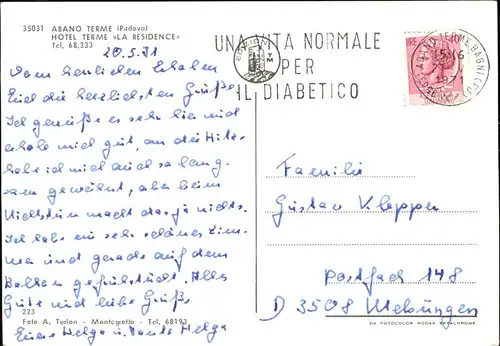 35031 ABANO TERME (Padova)
HOTEL TERME «LA RESIDENCE»
Tel. 68,333
20.5.71
Vom herrlichen Erholen
Euch die herzlichsten Grüße.
Ich genieße es sehr hier und
erhole mich gut, an die Hitze
habe ich mich auch so lang-
sam gewöhnt, aber beim
Nichtstun macht das ja nichts.
Ich habe ein sehr schönes Zim-
mer und gerade auf dem
Balkon gefrühstückt. Alles
Gute und liebe Grüße
Eure Helga u. Tante Helga
223
Foto A. Turlon - Montegrotto - Tel. 68193
UNA VITA NORMALE
PER
IL DIABETICO
ABANO TERME BAGNI
15-16
1971
Familie
Gustav Klepper
Postfach 148
D 3508 Melsungen
DA FOTOCOLOR KODAK EKTACHROME